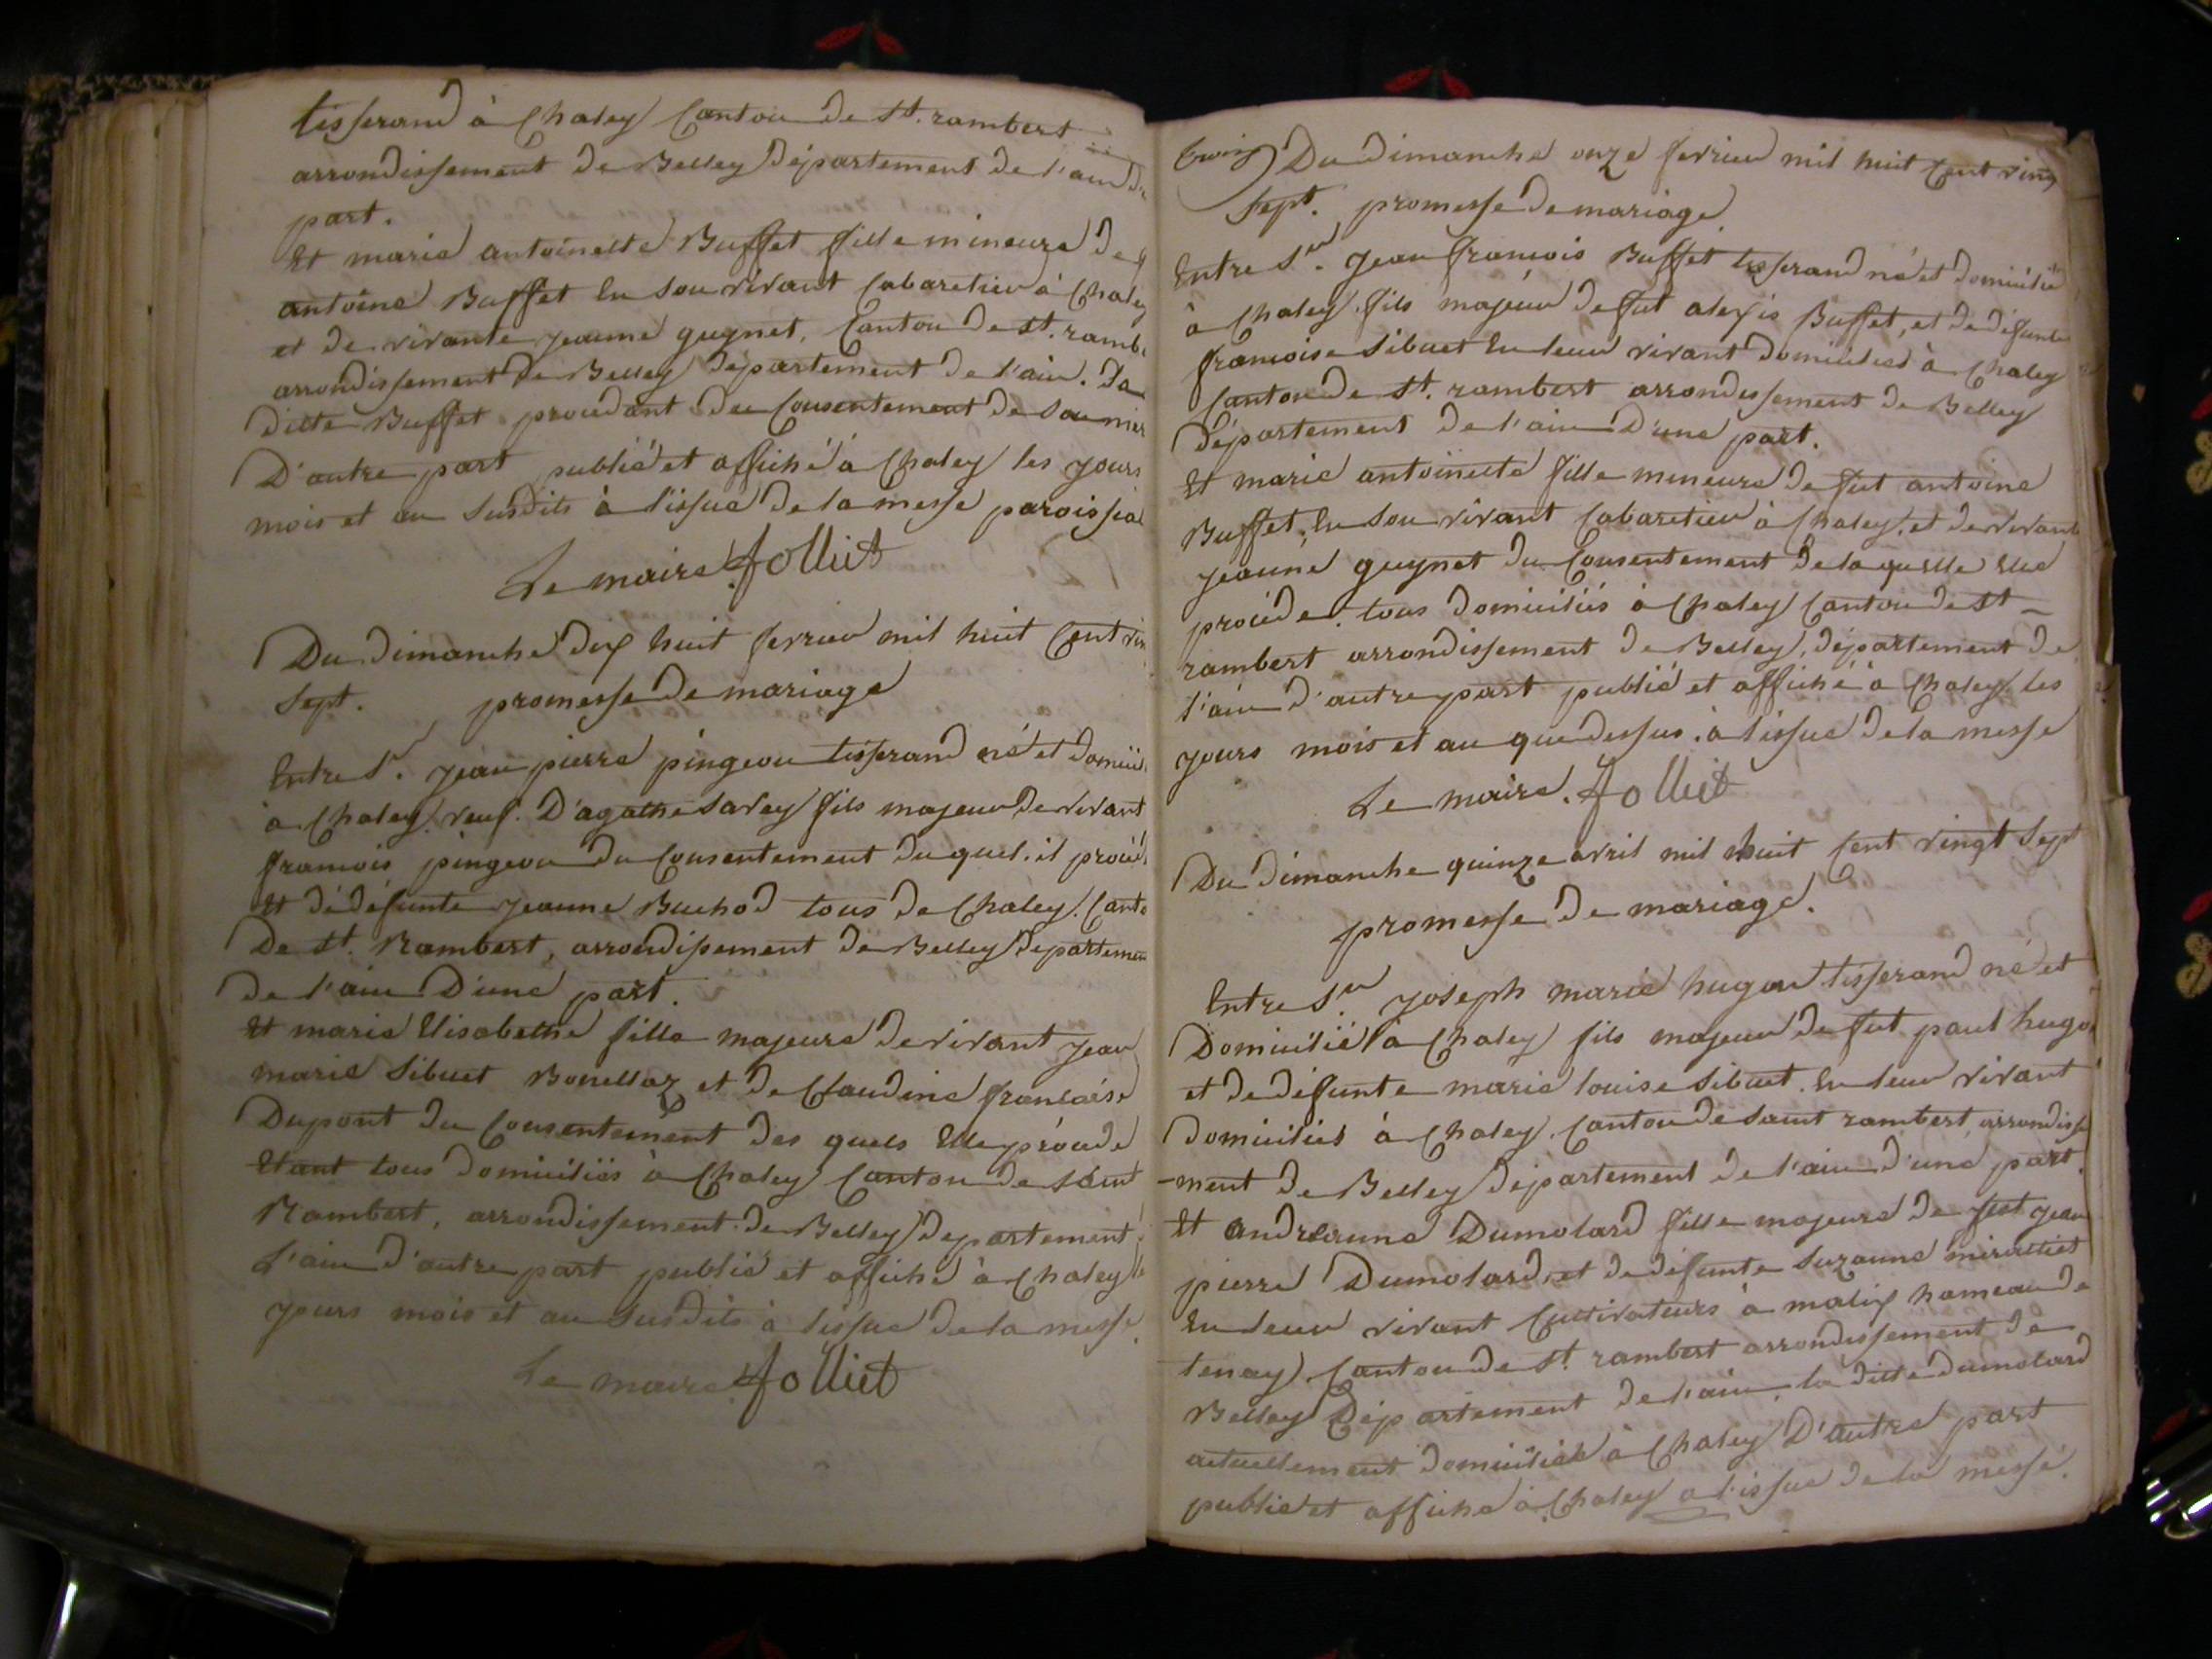 tisserand à Chaley Canton de St. rambert
arrondissement de Belley Département de l'ain d'u
part.
Et marie antoinette Buffet fille mineure de f
antoine Buffet En Son vivant Cabaretier à Chaley
et de vivante jeanne guynet, Canton de St. rambe
arrondissement de Belley Département de l'ain. La
ditte Buffet procédant du Consentement de Sa mer
D'autre part publié et affiché à Chaley les jours
mois et an Susdits à l'issue de la messe paroissial
Le maire Jolliet
Du Dimanche dix huit fevrier mil huit Cent vin
Sept. promesse de mariage
Entre Sr. jean pierre pingeon tisserand né et domici
à Chaley. veuf. D'agathe Savey fils majeur de vivant
francois pingeon du Consentement du quel. il procéd
Et de défunte jeanne Buchod tous de Chaley. Canto
De St. Rambert, arrondissement de Belley Departemen
de l'ain D'une part.
Et marie Elisabethe fille majeure de vivant jean
marie Sibuet Bonellaz et de Claudine francoise
Dupont du Consentement des quels Elle procède
Etant tous domiciliés à Chaley Canton de Saint
Rambert, arrondissement de Belley Departement
L'ain d'autre part publié et affiché à Chaley le
jours mois et an Susdits à lissue de la messe.
Le maire Jolliet
Du Dimanche onze fevrier mil huit Cent ving
Sept. promesse de mariage
Entre Sr. jean francois Buffet tisserand né et domicilié
à Chaley. fils majeur de fut alexis Buffet, et de défunte
francoise Sibuet En leur vivant domiciliés à Chaley
Canton de St. rambert arrondissement de Belley
Département de l'ain D'une part.
Et marie antoinette fille meneure de fut antoine
Buffet. En Son vivant Cabaretier à Chaley. et de vivante
jeanne guynet du Consentement de la quelle Elle
procéde. tous domiciliés à Chaley Canton de St
rambert arrondissement de Belley, département de
l'ain d'autre part publié et affiché à Chaley les
jours mois et an que dessus. à l'issue de la messe
Le maire. Jolliet
Du Dimanche quinze avril mil huit Cent vingt Sept
promesse de mariage.
Entre Sr. joseph marie hugon tisserand né et
Domicilié à Chaley fils majeur de fut paul hugon
et de défunte marie louise Sibuet. En leur vivant
domiciliés à Chaley. Canton de Saint rambert arrondisse
-ment de Belley Département de l'ain d'une part.
Et Dumolard fille majeure de fut jean
pierre Dumolard, et de défunte Suzanne
En leur vivant Cultivateurs à malix hameau de
tenay. Canton de St. rambert arrondissement de
Belley Département de l'ain. la ditte dumolard
actuellement domiciliée à Chaley D'autre part
publié et affiché à Chaley a l'issue de la messe.